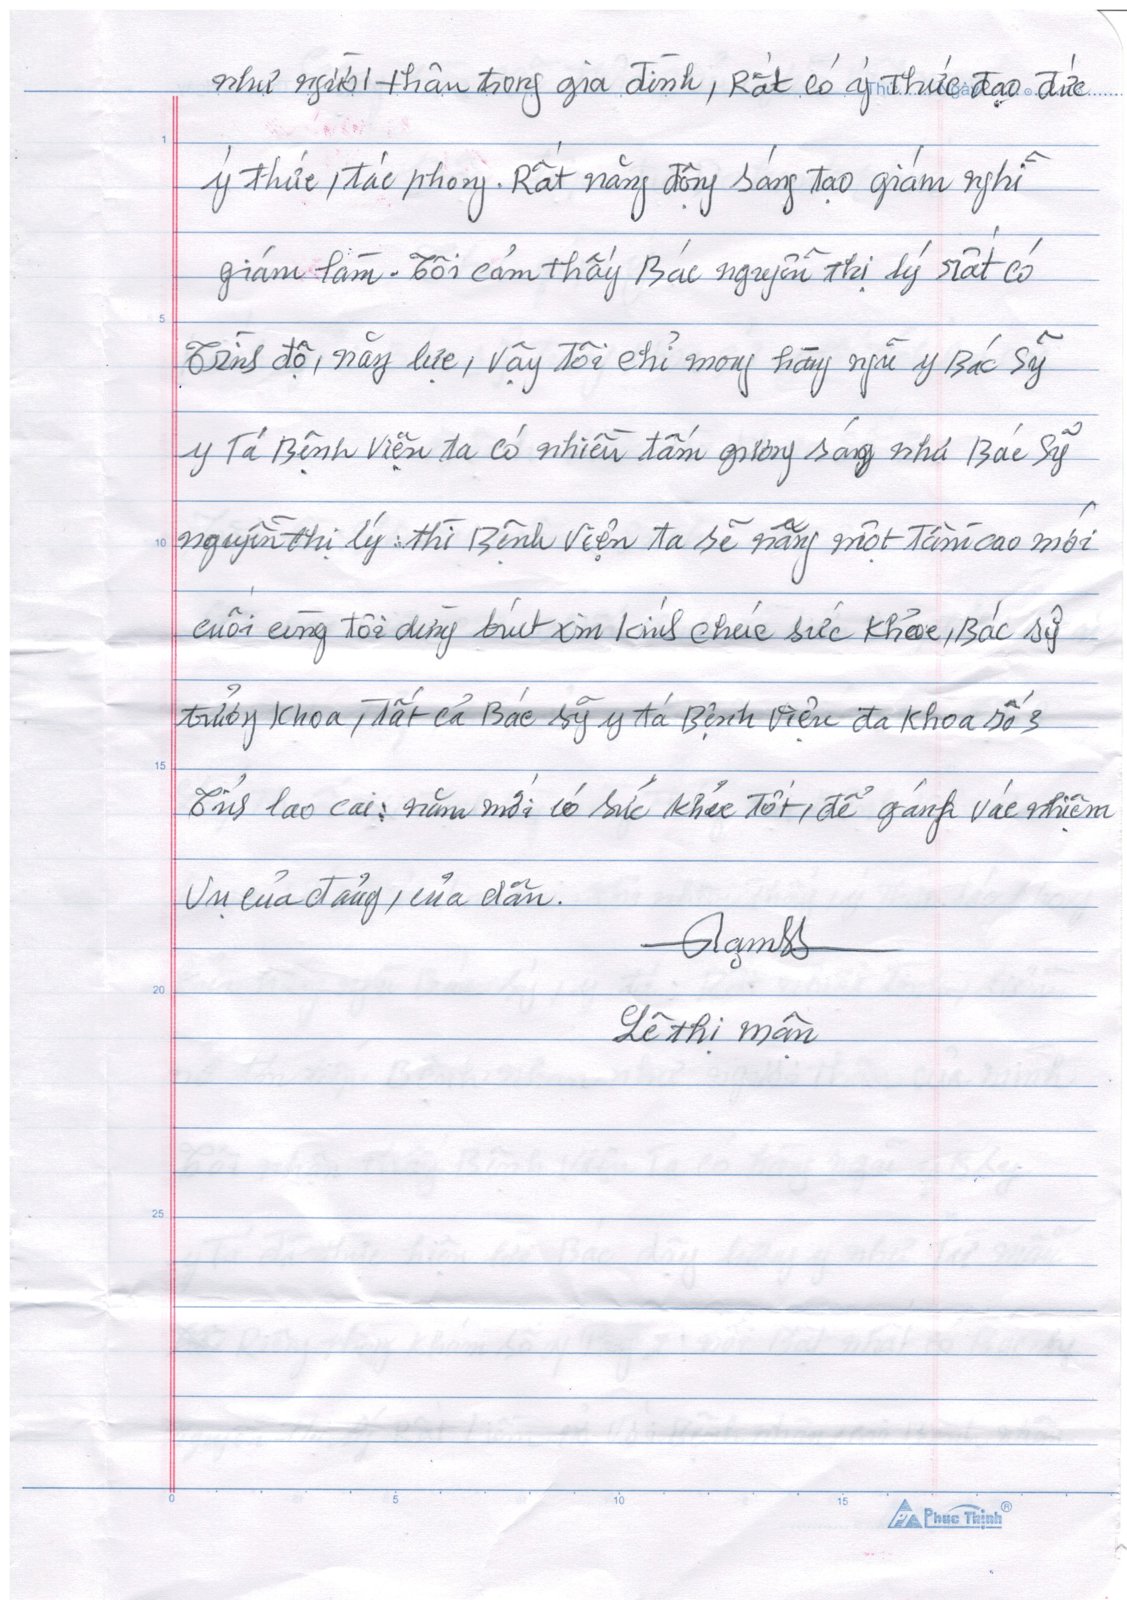 như người thân trong gia đình, Rất có ý thức đạo đức
ý thức, tác phong. Rất năng động sáng tạo giám nghĩ
giám làm. Tôi cảm thấy Bác nguyễn thị lý rất có
Trình độ, năng lực, vậy tôi chỉ mong hàng ngũ y Bác Sỹ
y Tá Bệnh Viện ta có nhiều tấm gương sáng như Bác Sỹ
nguyễn thị lý: thì Bệnh Viện ta sẽ nâng một tầm cao mới
cuối cùng tôi dừng bút xin kính chúc sức khỏe, Bác sỹ
trưởng khoa, Tất cả Bác sỹ y tá Bệnh Viện đa khoa số 3
Tỉnh lao cai: năm mới có sức khỏe tốt, để gánh vác nhiệm
Vụ của đảng, của dân.
Lê thị mận
1
5
10
15
20
25
0 5 10 15
Phúc Thịnh ®